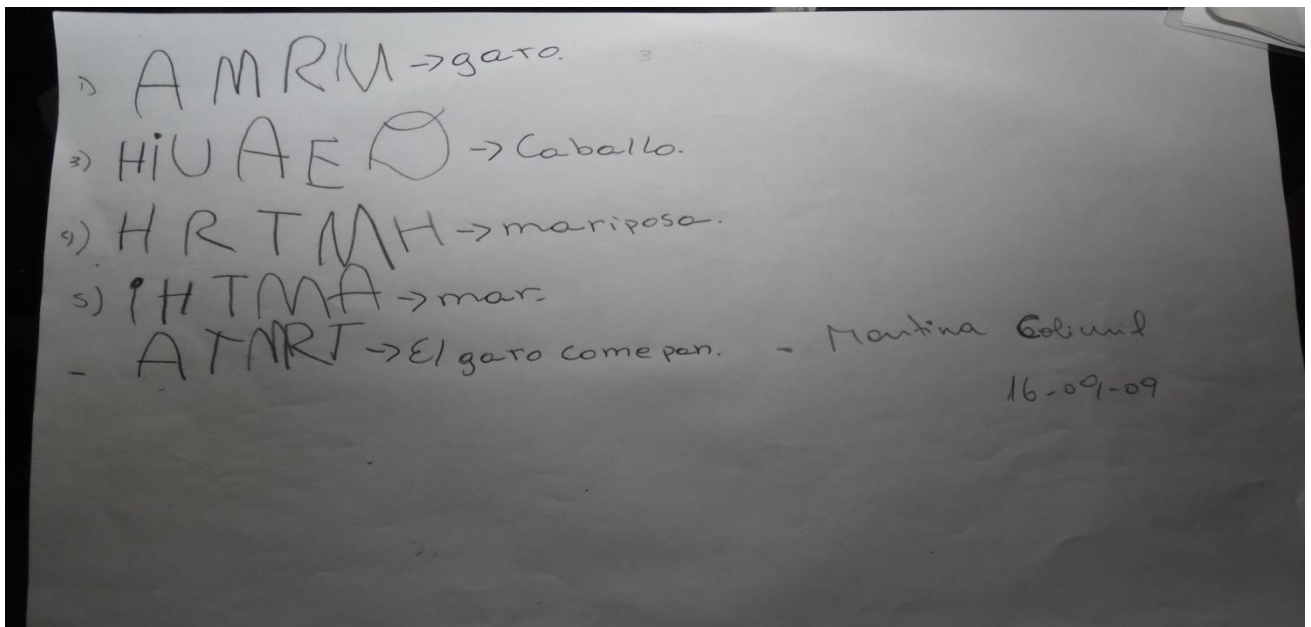 1) AMRM → gato.
3) HiUAEO → Caballo.
4) HRTMH → mariposa.
5) iHTMA → mar.
- ATMRT → El gato come pan. - Martina
16-09-09